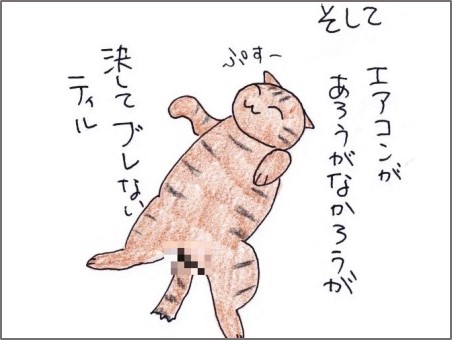 そして
エアコンが
あろうがなかろうが
ぷすー
決してブレない
ティル